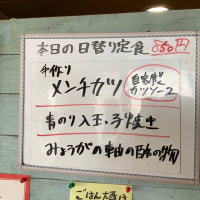 本日の日替り定食 850円
手作り
メンチカツ
自家製
カツソース
青のり入玉子焼き
みょうがの
ごはん大盛り